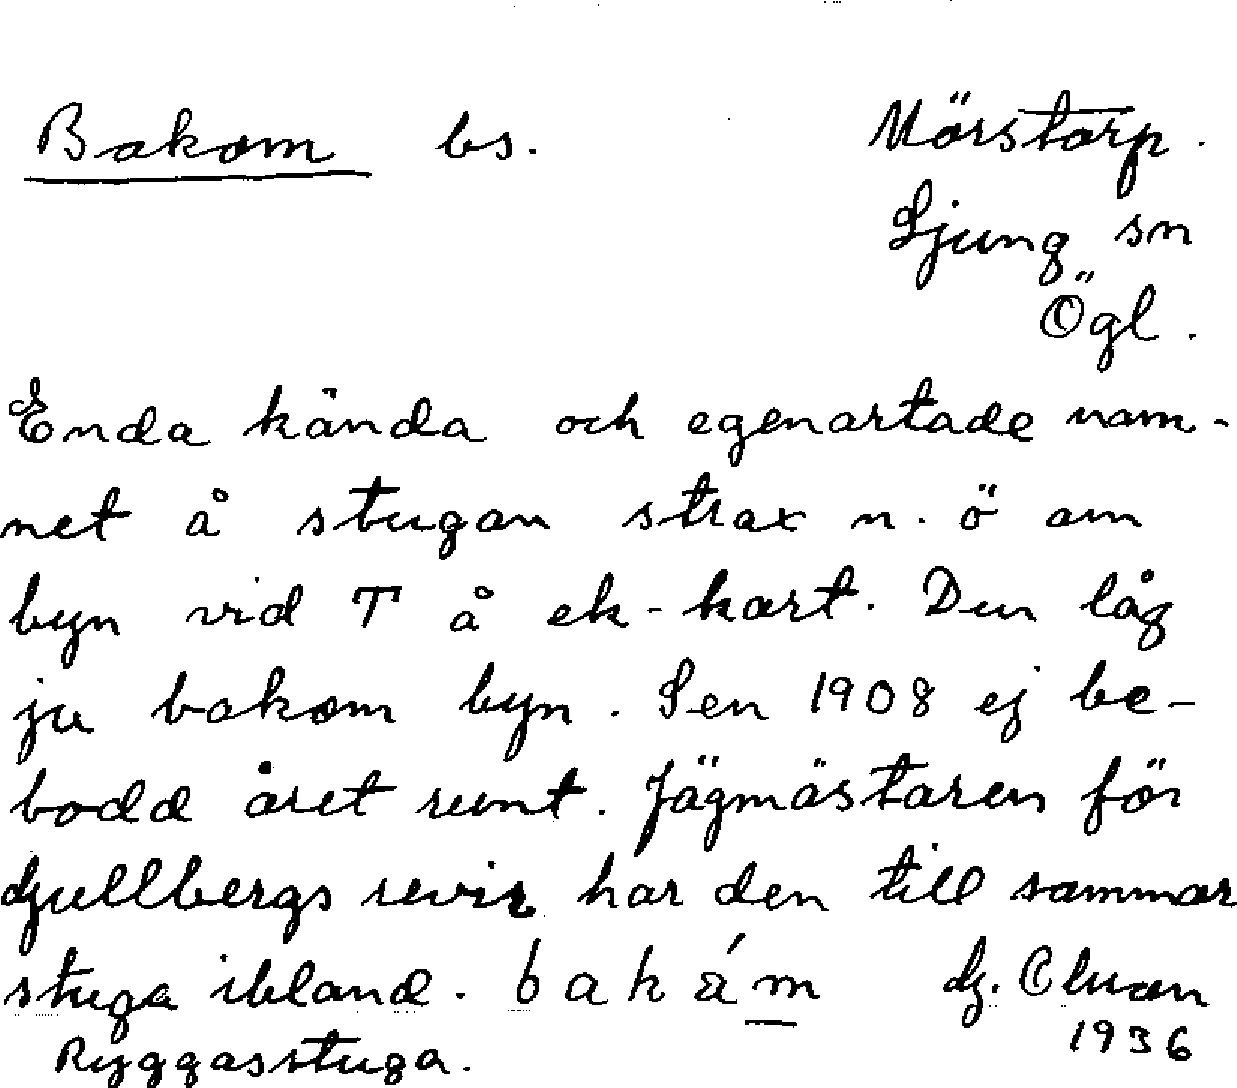 Bakom bs. Mörstorp.
Ljung sn
Ögl.
Enda kända och egenartade nam-
net å stugan strax n. ö om
byn vid T å ek-kart. Den låg
ju bakom byn. Sen 1908 ej be-
bodd året runt. Jägmästaren för
Gullbergs revir har den till sommar
stuga ibland. bakåm G.
1936
Ryggasstuga.